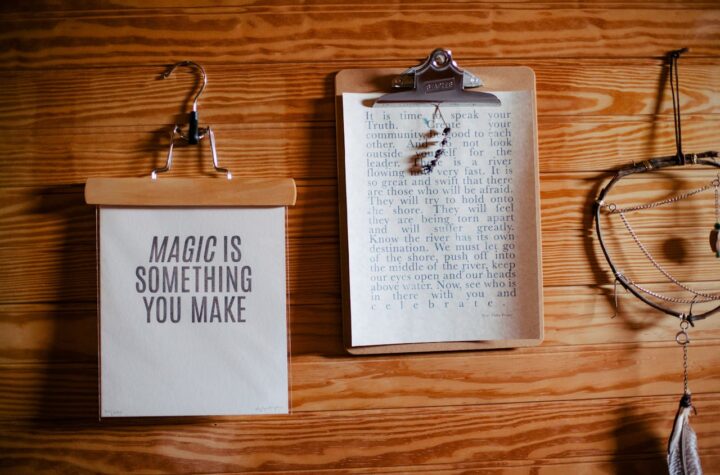 MAGIC IS
SOMETHING
YOU MAKE
It is time to speak your
Truth. Create your
community. good to each
other. And do not look
outside yourself for the
leader. This is a river
flowing very fast. It is
so great and swift that there
are those who will be afraid.
They will try to hold onto
the shore. They will feel
they are being torn apart
and will suffer greatly.
Know the river has its own
destination. We must let go
of the shore, push off into
the middle of the river, keep
our eyes open and our heads
above water. Now, see who is
in there with you and
celebrate.